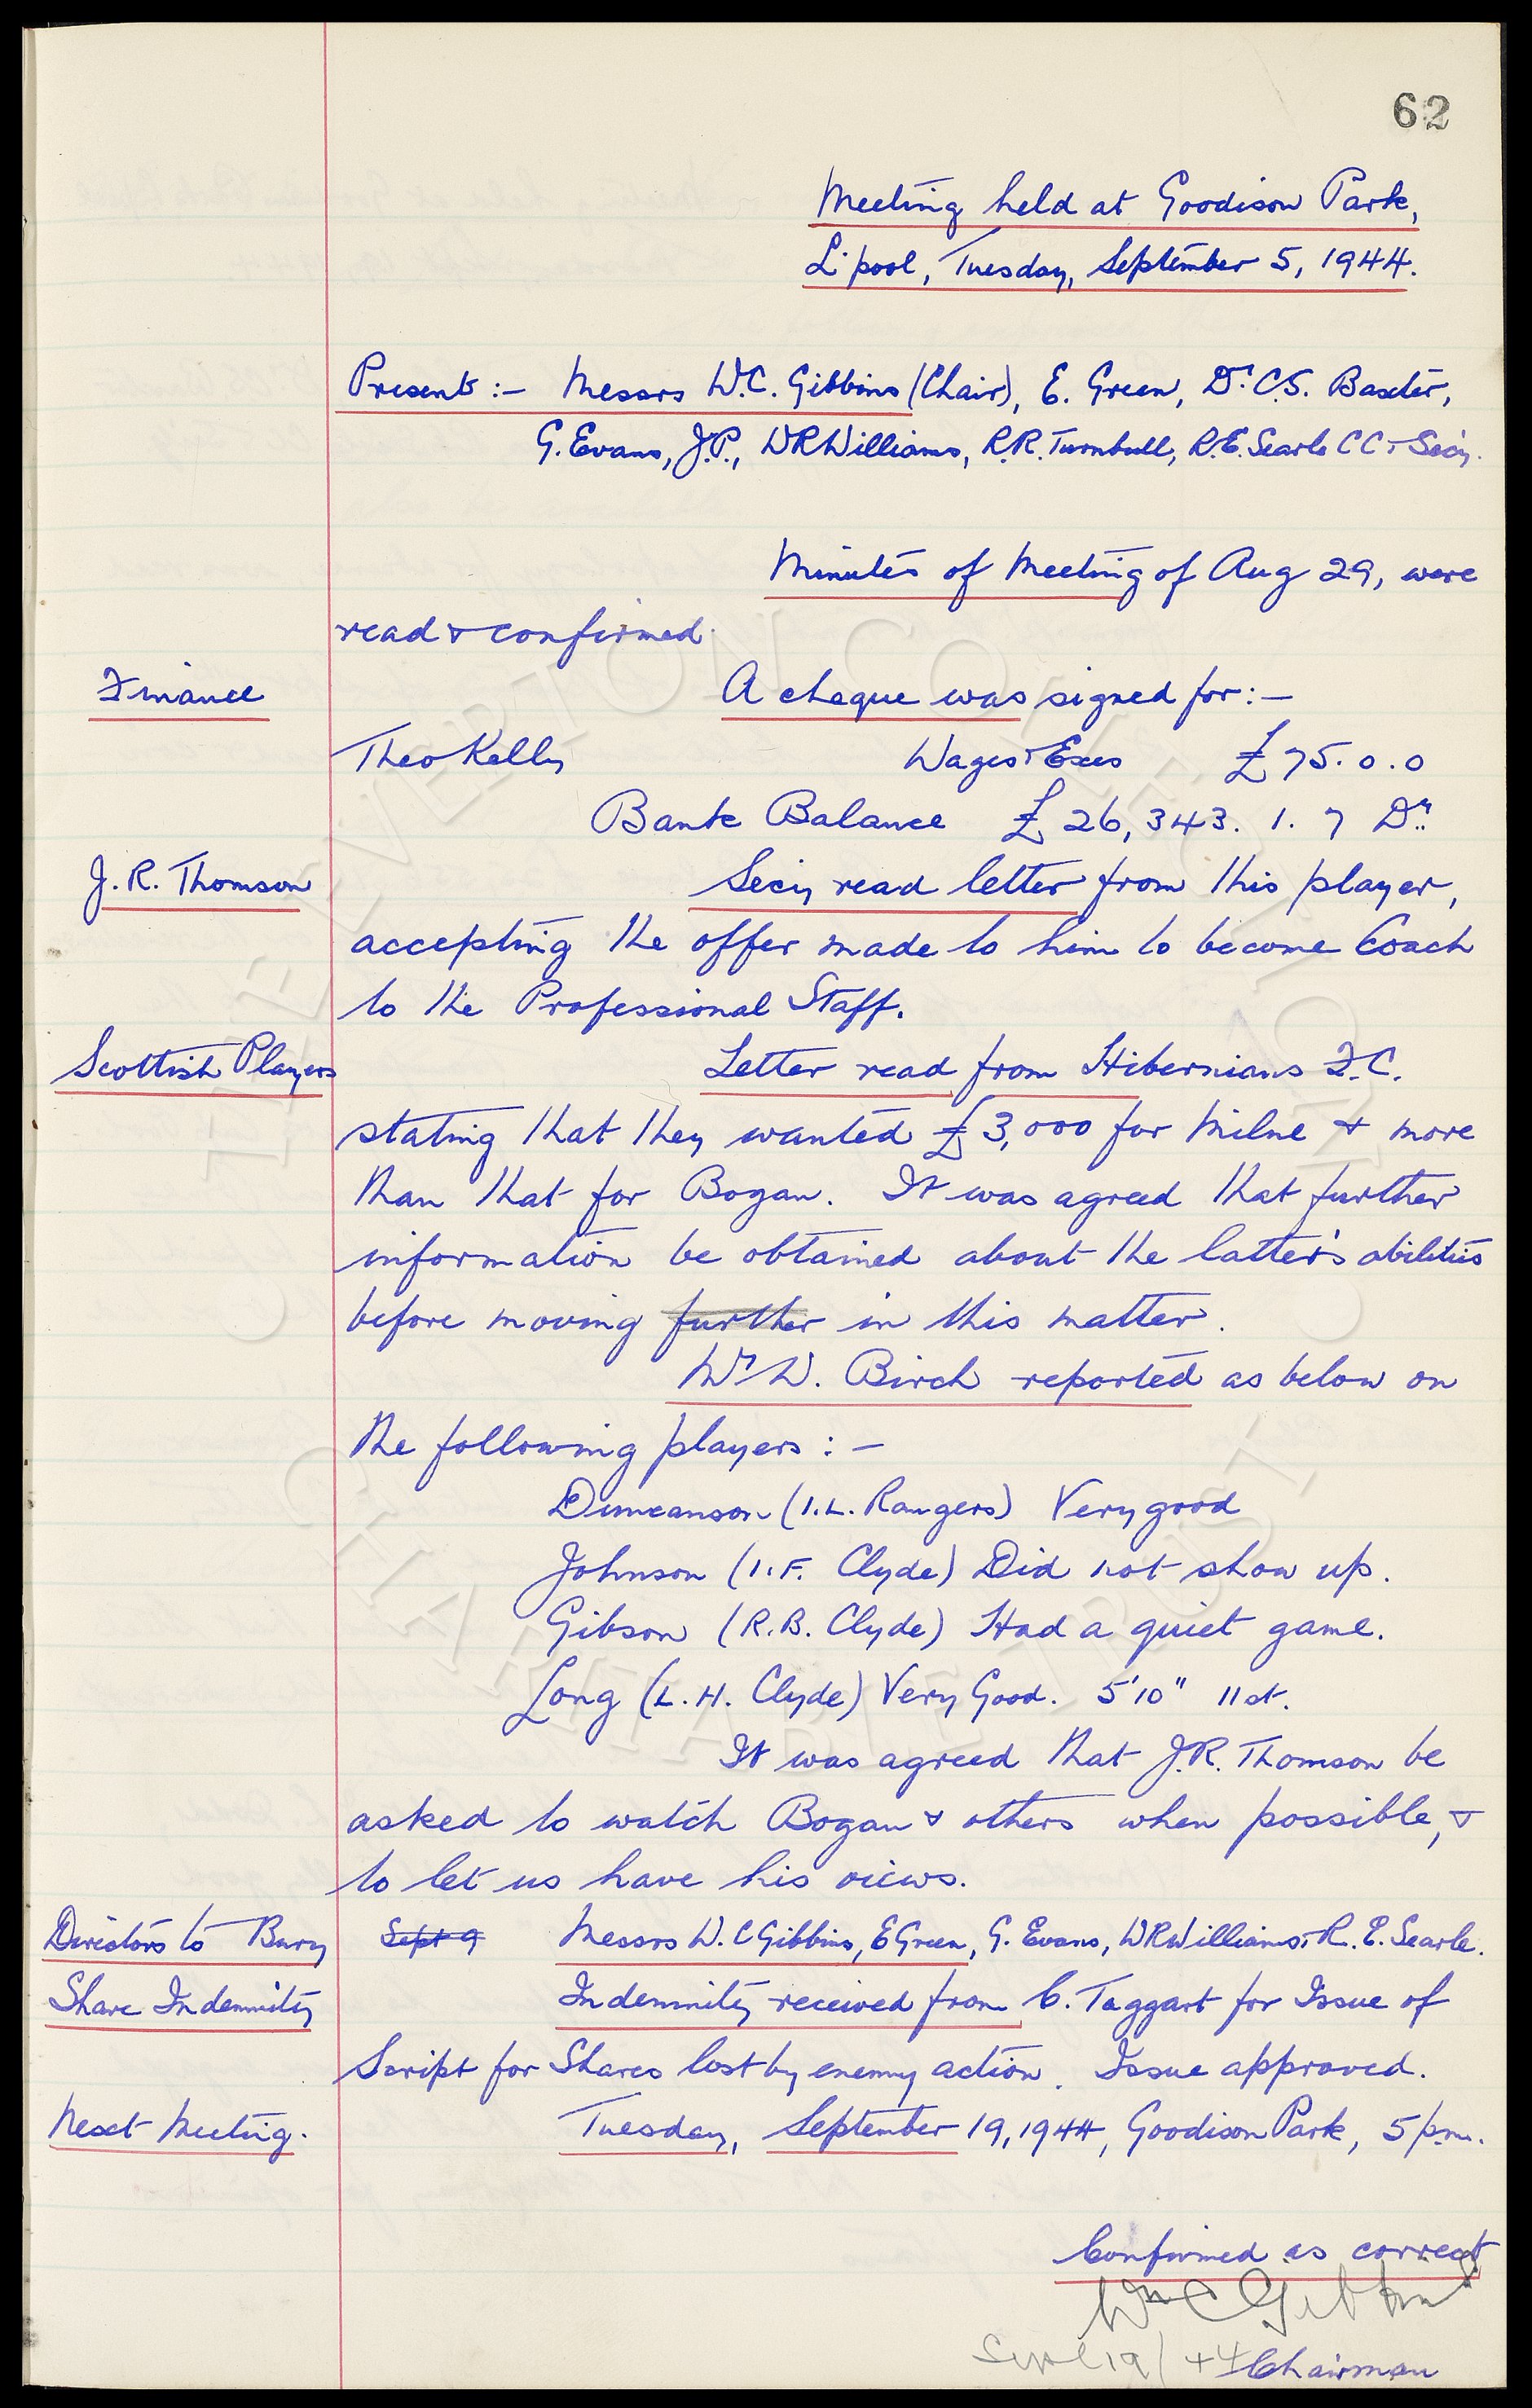 62
Meeting held at Goodison Park,
L'pool, Tuesday, September 5, 1944.
Present :- Messrs W.C. Gibbins (Chair), E. Green, Dr. C.S. Baxter,
G. Evans, J.P., W R Williams, R.R. Turnbull, R.E. Searle CC & Sec'y.
Minutes of Meeting of Aug 29, were
read & confirmed.
Finance A cheque was signed for :-
Theo Kelly Wages & Exes £75. 0. 0
Bank Balance £26,343. 1. 7 Dr.
J. R. Thomson Secy read letter from this player,
accepting the offer made to him to become Coach
to the Professional Staff.
Scottish Players Letter read from Hibernians F.C.
stating that they wanted £3,000 for Milne & more
than that for Bogan. It was agreed that further
information be obtained about the latter's abilities
before moving further in this matter.
Mr W. Birch reported as below on
the following players : -
Duncanson (I.L. Rangers) Very good
Johnson (I.F. Clyde) Did not show up.
Gibson (R.B. Clyde) Had a quiet game.
Long (L.H. Clyde) Very Good. 5'10" 11 st.
It was agreed that J.R. Thomson be
asked to watch Bogan & others when possible, &
to let us have his views.
Directors to Bury Sept 9 Messrs W. C Gibbins, E Green, G. Evans, W R Williams & R. E. Searle.
Share Indemnity Indemnity received from C. Taggart for Issue of
Script for Shares lost by enemy action. Issue approved.
Next Meeting. Tuesday, September 19, 1944, Goodison Park, 5 pm.
Confirmed as correct
Wm C Gibbins
Sept 19/44 Chairman
THE EVERTON COLLECTION CHARITABLE TRUST